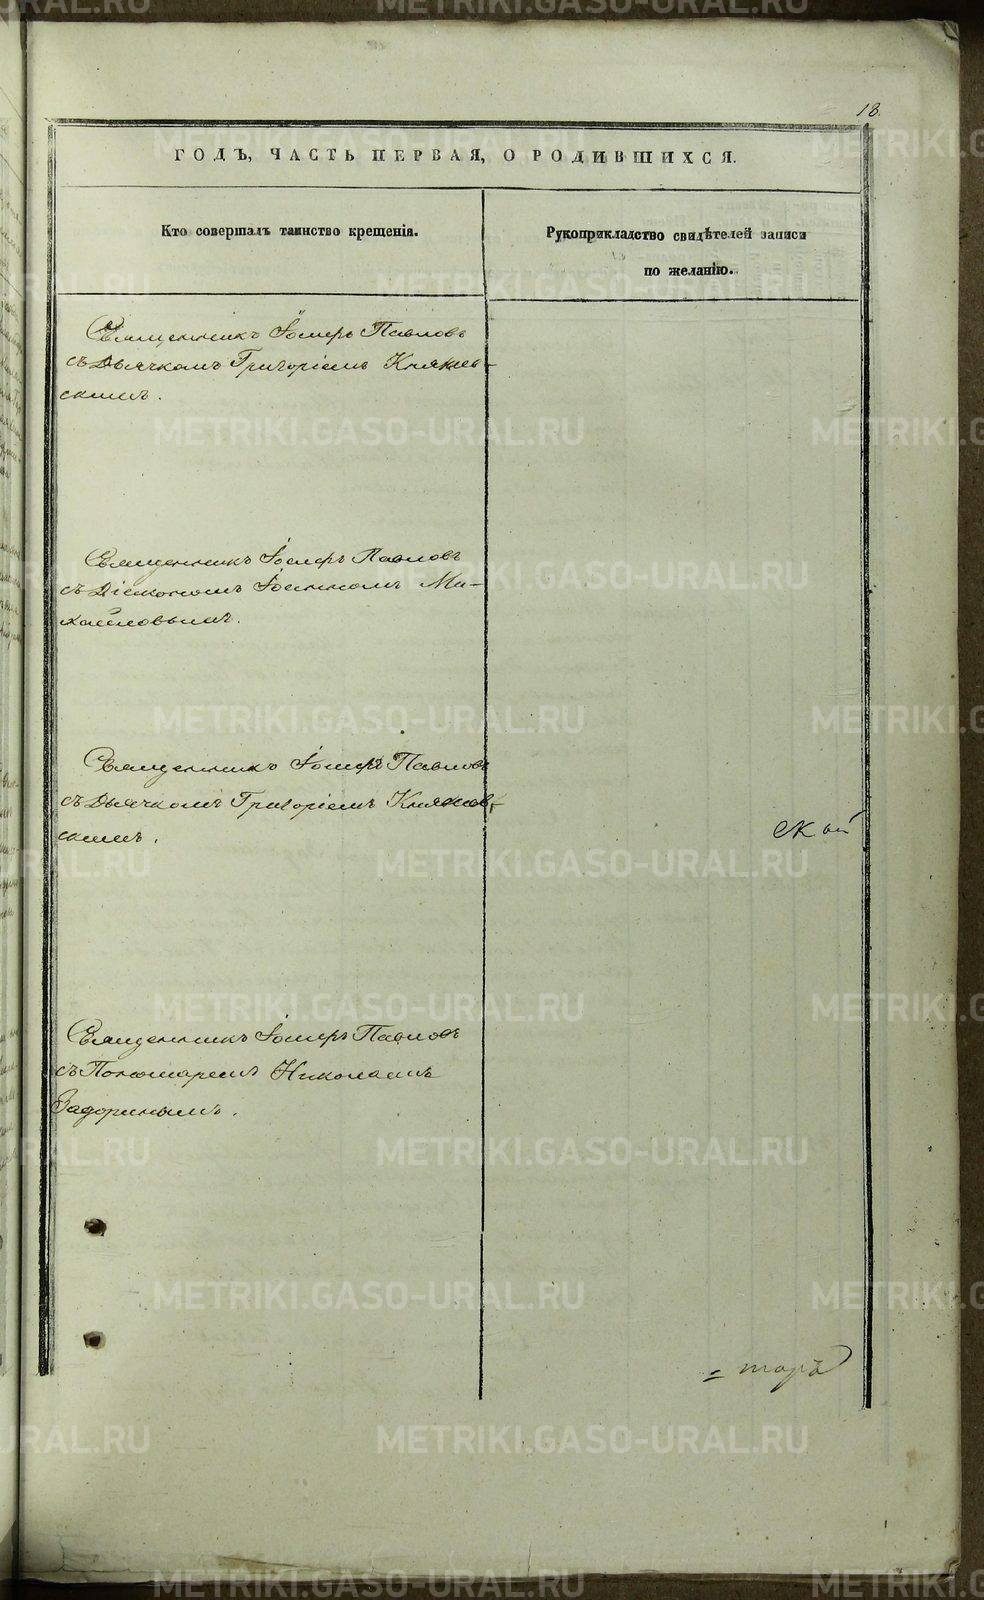 18.
ГОДЪ, ЧАСТЬ ПЕРВАЯ, О РОДИВШИХСЯ.
Кто совершалъ таинство крещенія.
Рукоприкладство свидѣтелей записи
по желанію.
Священникъ Іосифъ Павловъ
съ Дьячкомъ Григоріемъ Княжев-
скимъ.
Священникъ Іосифъ Павловъ
съ Діякономъ Іоанномъ Ми-
хайловымъ.
Священникъ Іосифъ Павловъ
съ Дьячкомъ Григоріемъ Княжев-
скимъ.
скій
Священникъ Іосифъ Павловъ
съ Пономаремъ Николаемъ
Задоринымъ.
= таръ
METRIKI.GASO-URAL.RU